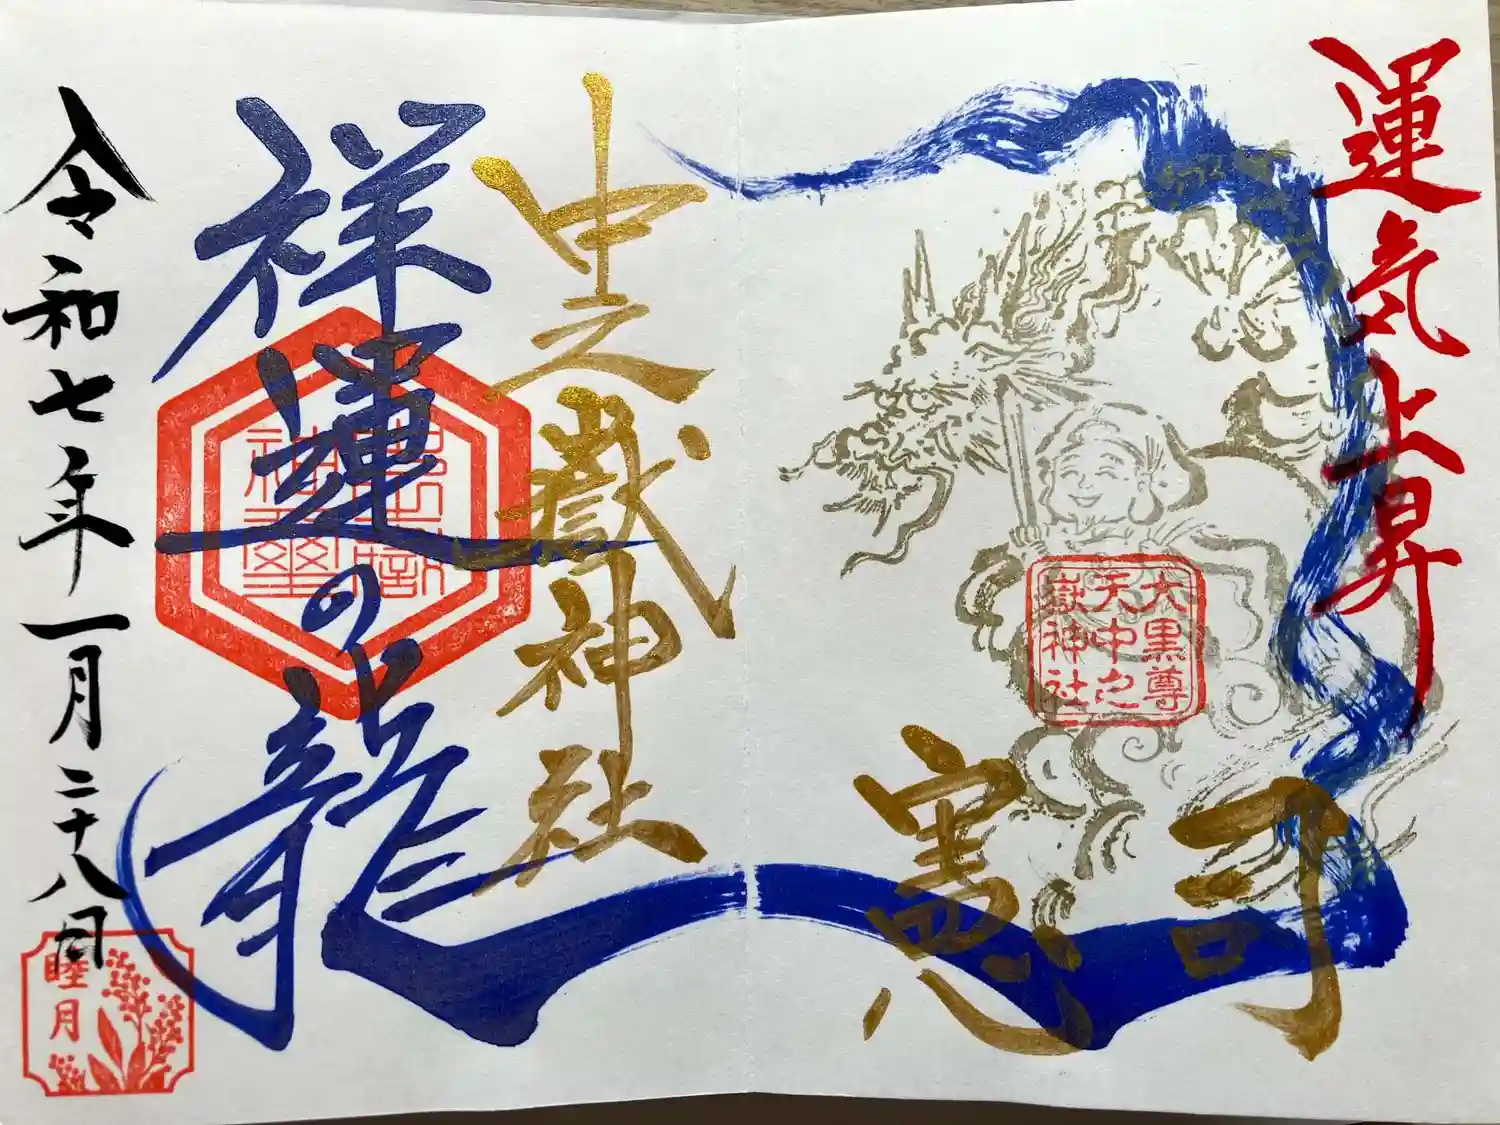 運気上昇
憲司
大黒尊
天中之
嶽神社
中之嶽神社
祥運の龍
令和七年一月二十八日
睦月